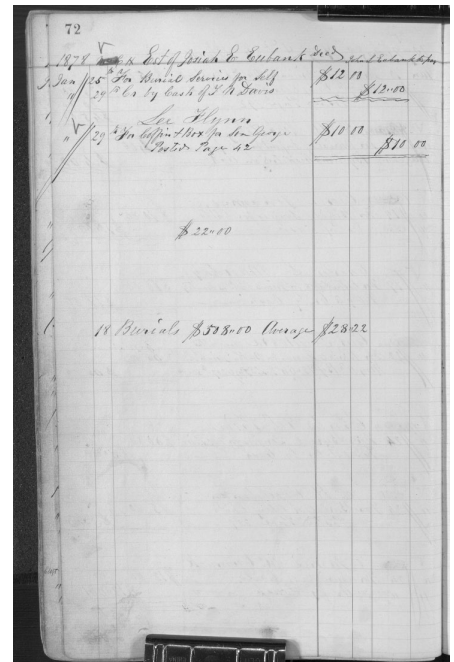 72
1878 Est of Josiah E Eubank Decd
Jan 25 For Burial Services for Self $12 00
" 29 Cr By Cash of T N Davis $12"00
Lee Flynn
" 29 For Coffin & Box for Son George $10 00
Posted Page 42 $10 00
$22"00
18 Burials $508"00 Average $28"22